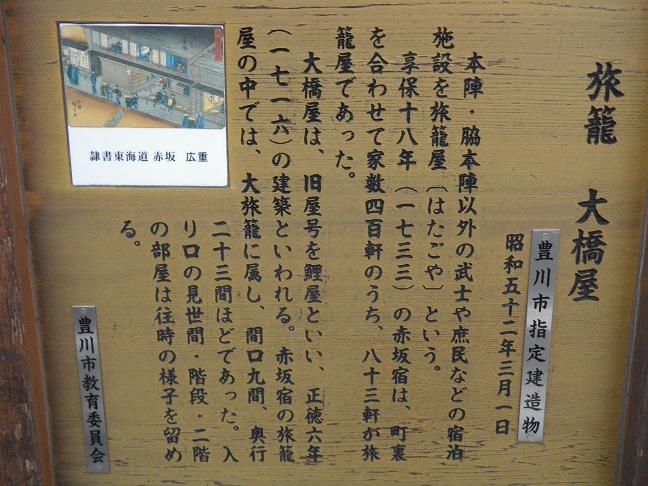 旅籠 大橋屋
豊川市指定建造物
昭和五十二年三月一日
本陣・脇本陣以外の武士や庶民などの宿泊
施設を旅籠屋〔はたごや〕という。
享保十八年(一七三三)の赤坂宿は、町裏
を合わせて家数四百軒のうち、八十三軒が旅
籠屋であった。
大橋屋は、旧屋号を鯉屋といい、正徳六年
(一七一六)の建築といわれる。赤坂宿の旅籠
屋の中では、大旅籠に属し、間口九間、奥行
二十三間ほどであった。入
り口の見世間・階段・二階
の部屋は往時の様子を留め
る。
豊川市教育委員会
隷書東海道 赤坂 広重